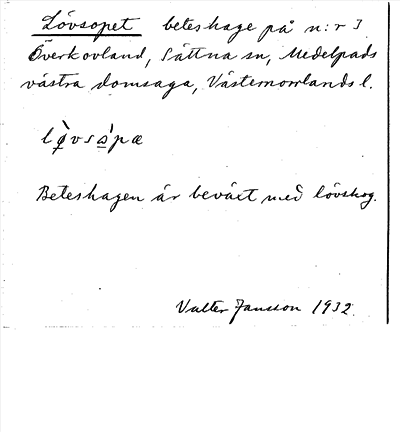 Lövsopet beteshage på n:r 3
Överkovland, Sättna sn, Medelpads
västra domsaga, Västernorrlands l.
lø̀vsɑ̀pæ
Beteshagen är beväxt med lövskog.
Valter Jansson 1932.